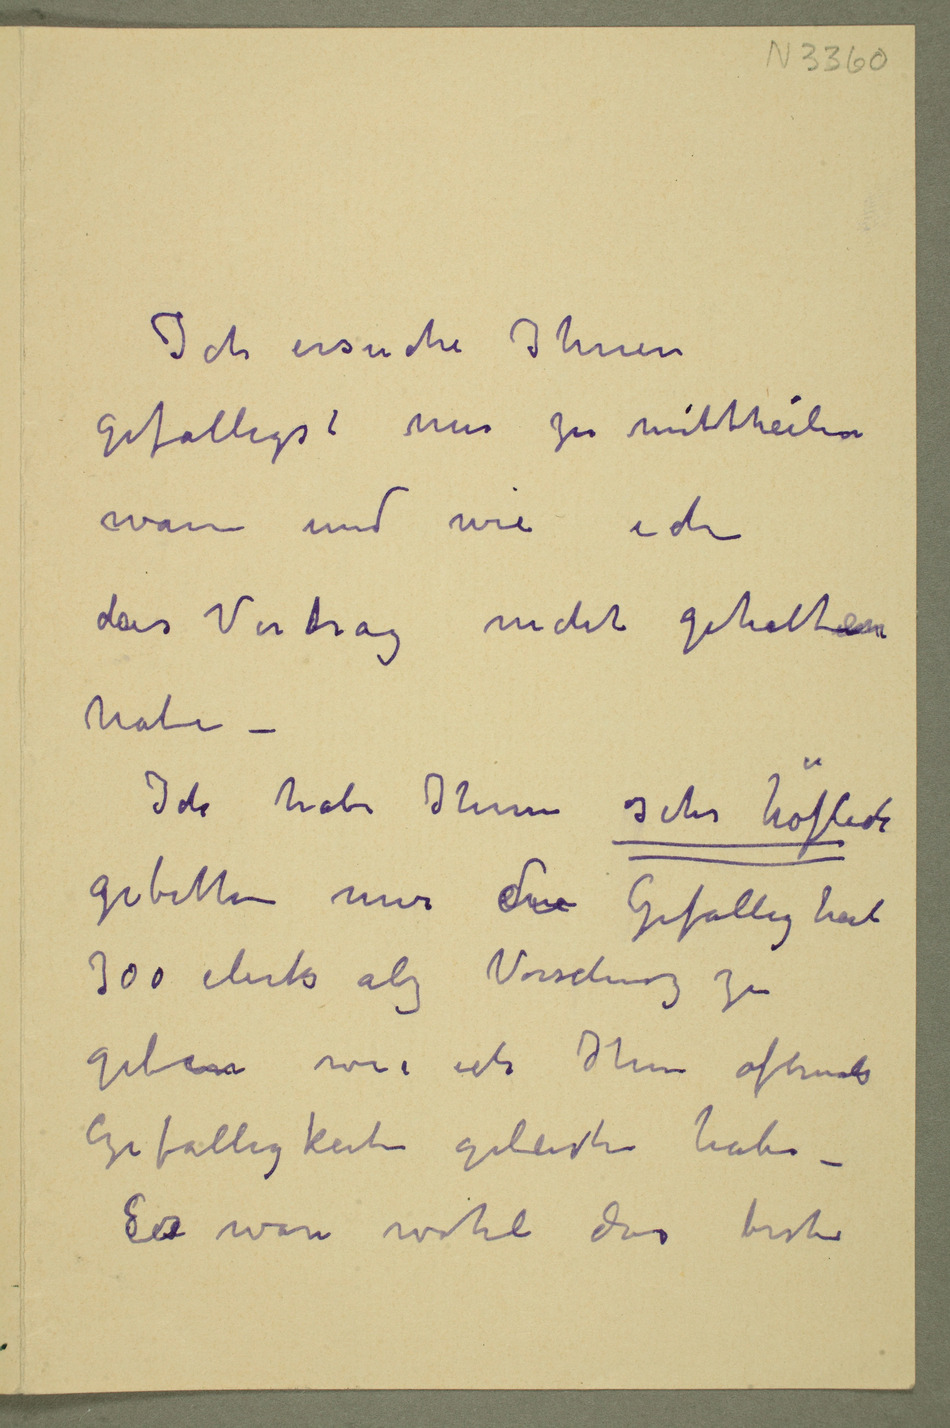 N 3360
Ich ersuche Ihnen
gefalligst mir zu mittheilen
wann und wie ich
das Vertrag nicht gehalten
habe –
Ich habe Ihnen sehr höflich
gebetten mir die Gefalligkeit
300 als Vorschuss zu
geben wie ich Ihnen oftmals
Gefalligkeiten geleistet habe –
Es war wohl das beste